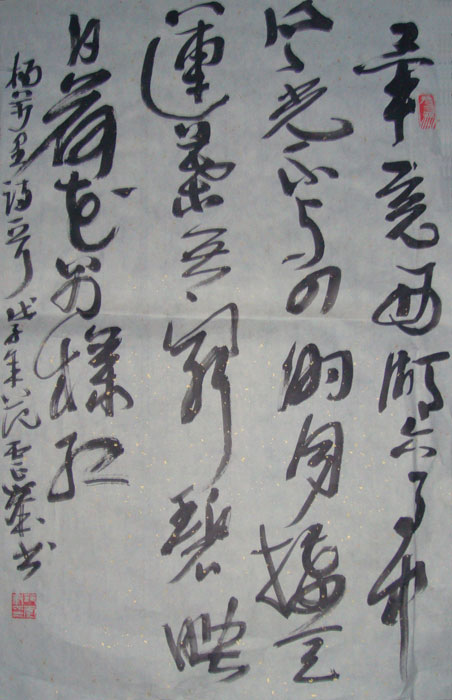 毕竟西湖六月中
风光不与四时同接天
莲葉无穷碧映
日荷花别樣红
杨万里诗一首 戊子年范 书